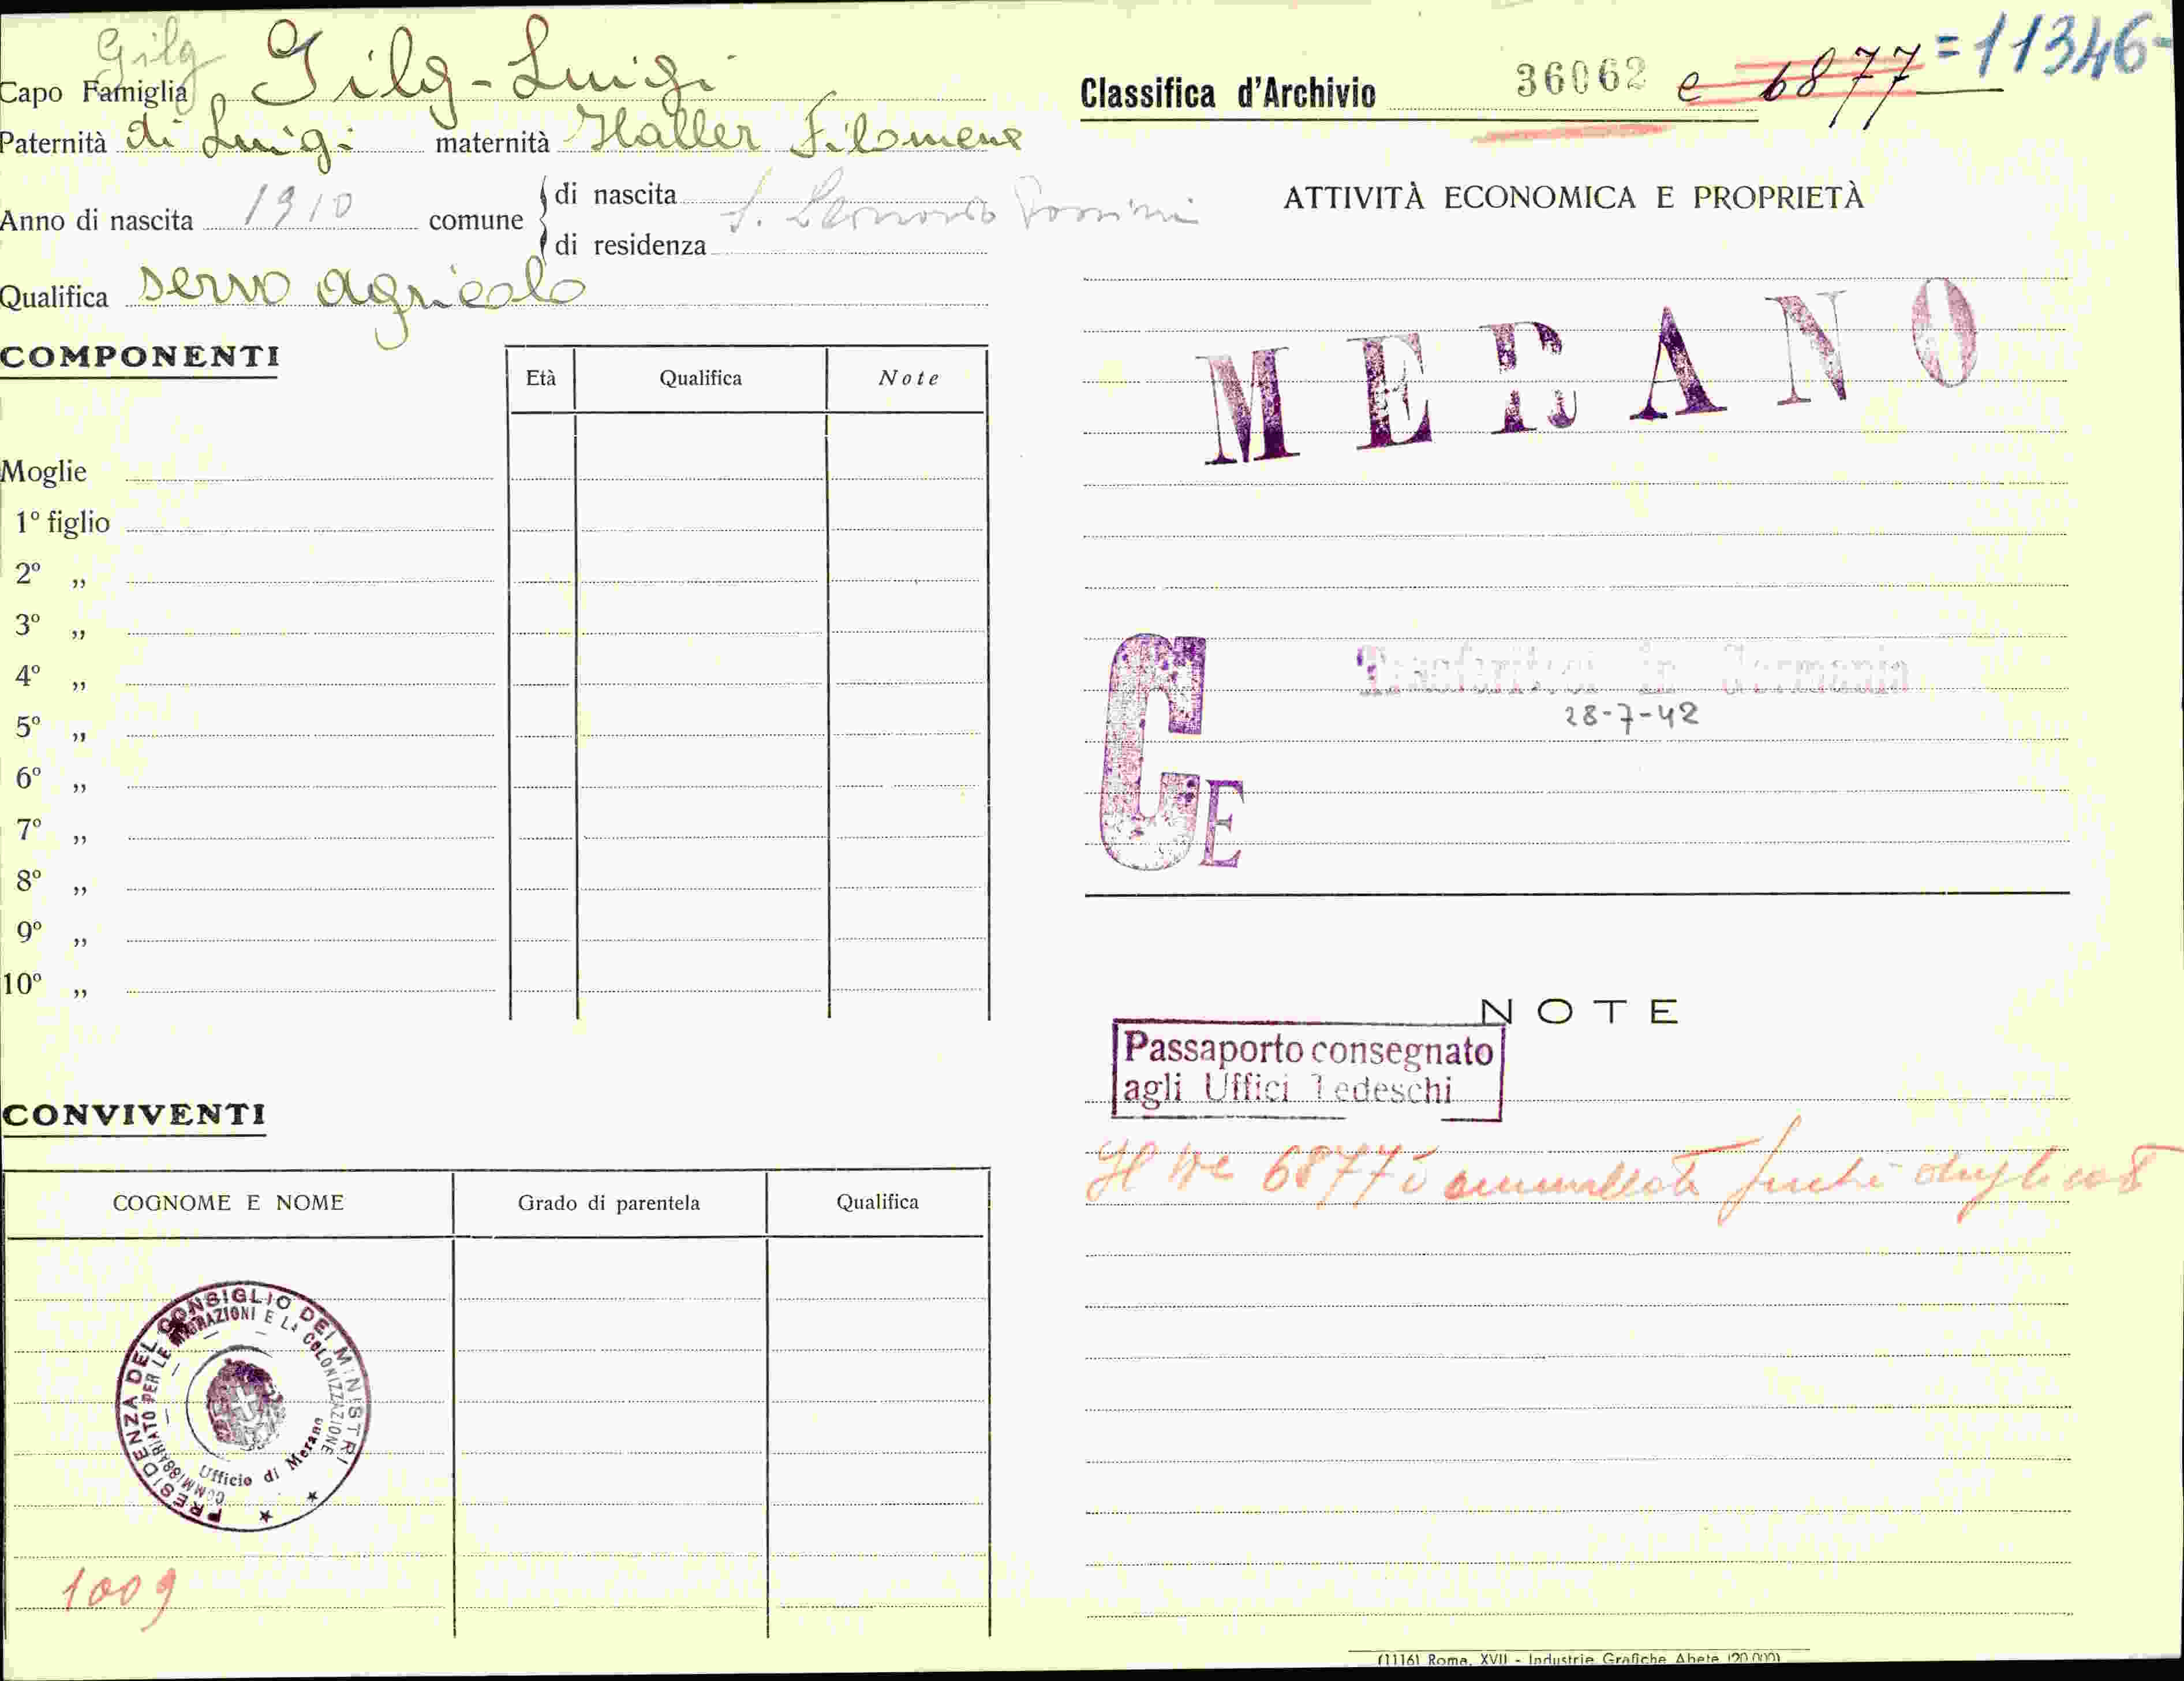 Gilg
Capo Famiglia Gilg - Luigi
Paternità di Luigi maternità Haller Filomena
Anno di nascita 1910 comune di nascita S. Leonardo
di residenza
Qualifica servo agricolo
COMPONENTI
Età Qualifica Note
Moglie
1º figlio
2º „
3º „
4º „
5º „
6º „
7º „
8º „
9º „
10º „
CONVIVENTI
COGNOME E NOME Grado di parentela Qualifica
PRESIDENZA DEL CONSIGLIO DEI MINISTRI
COMMISSARIATO PER LE MIGRAZIONI E LA COLONIZZAZIONE
Ufficio di Merano
1009
Classifica d'Archivio 36062 e 6877 = 11346-
ATTIVITÀ ECONOMICA E PROPRIETÀ
MERANO
Trasferitosi in Germania
28-7-42
CE
NOTE
Passaporto consegnato
agli Uffici Tedeschi
Il 6877 è annullato
(1116) Roma, XVII - Industrie Grafiche Abete (20.000)